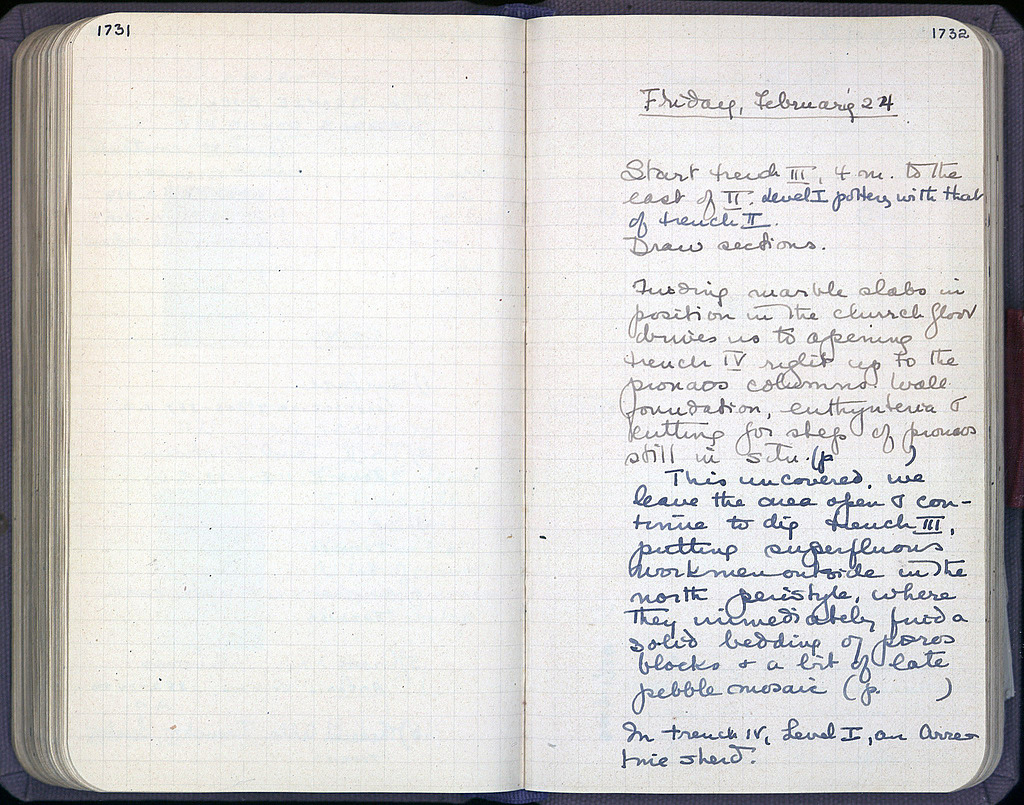 1731
1732
Friday, February 24
Start trench III, 4 m. to the
east of II. Level I pottery with that
of trench II.
Draw sections.
Finding marble slabs in
position in the church floor
drives us to opening
trench IV right up to the
pronaos columns. Wall
foundation, euthynteria &
cutting for step of pronaos
still in situ. (p )
This uncovered, we
leave the area open & con-
tinue to dig trench III,
putting superfluous
workmen outside in the
north peristyle, where
they immediately find a
solid bedding of poros
blocks & a bit of late
pebble mosaic (p. )
In trench IV, Level I, an Arre-
tine sherd.